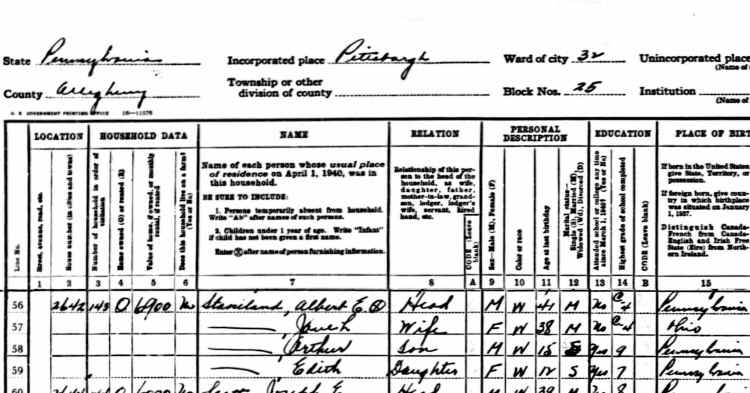 State Pennsylvania Incorporated place Pittsburgh Ward of city 32 Unincorporated place
(Name of
County Allegheny Township or other
division of county Block Nos. 25 Institution
(Name of
U. S. GOVERNMENT PRINTING OFFICE 16—11576
LOCATION HOUSEHOLD DATA NAME RELATION PERSONAL DESCRIPTION EDUCATION PLACE OF BIRT
Line No.
Street, avenue, road, etc.
House number (in cities and towns)
Number of household in order of visitation
Home owned (O) or rented (R)
Value of home, if owned, or monthly rental, if rented
Does this household live on a farm? (Yes or No)
Name of each person whose usual place
of residence on April 1, 1940, was in
this household.
BE SURE TO INCLUDE:
1. Persons temporarily absent from household.
Write "Ab" after names of such persons.
2. Children under 1 year of age. Write "Infant"
if child has not been given a first name.
Enter ⓧ after name of person furnishing information.
Relationship of this per-
son to the head of the
household, as wife,
daughter, father,
mother-in-law, grand-
son, lodger, lodger's
wife, servant, hired
hand, etc.
CODE (Leave blank)
Sex—Male (M), Female (F)
Color or race
Age at last birthday
Marital status—
Single (S), Married (M),
Widowed (Wd), Divorced (D)
Attended school or college any time since March 1, 1940? (Yes or No)
Highest grade of school completed
CODE (Leave blank)
If born in the United States
give State, Territory, or
possession.
If foreign born, give coun-
try in which birthplace
was situated on January
1, 1937.
Distinguish Canada-
French from Canada-
English and Irish Free
State (Eire) from North-
ern Ireland.
1 2 3 4 5 6 7 8 A 9 10 11 12 13 14 B 15
56 2642 143 O 6900 No Staniland, Albert E. ⓧ Head M W 41 M No C-4 Pennsylvania
57 Wife F W 38 M No C-4 Ohio
58 Arthur Son M W 15 S Yes 9 Pennsylvania
59 Edith Daughter F W 12 S Yes 7 Pennsylvania
60 Joseph E. Head M W 39 M No 8